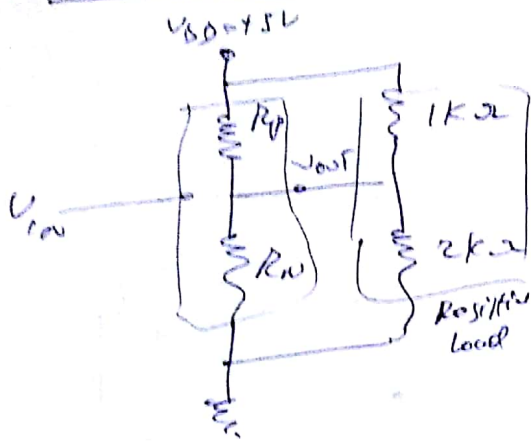 VDD=+5V
Rp
1KΩ
VOUT
VIN
RN
2KΩ
Resistive
Load